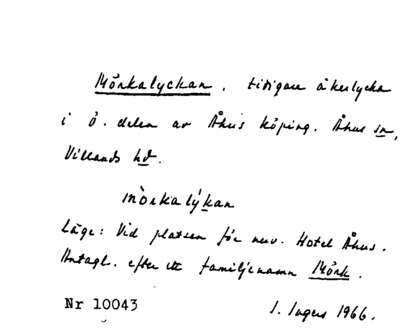 Mörkalyckan, tidigare åkerlycka
i ö. delen av Åhus köping. Åhus sn,
Villands hd.
mòrkalýkan
Läge: Vid platsen för nuv. Hotel Åhus.
Antagl. efter ett familjenamn Mörk.
Nr 10043
I. Ingers 1966.